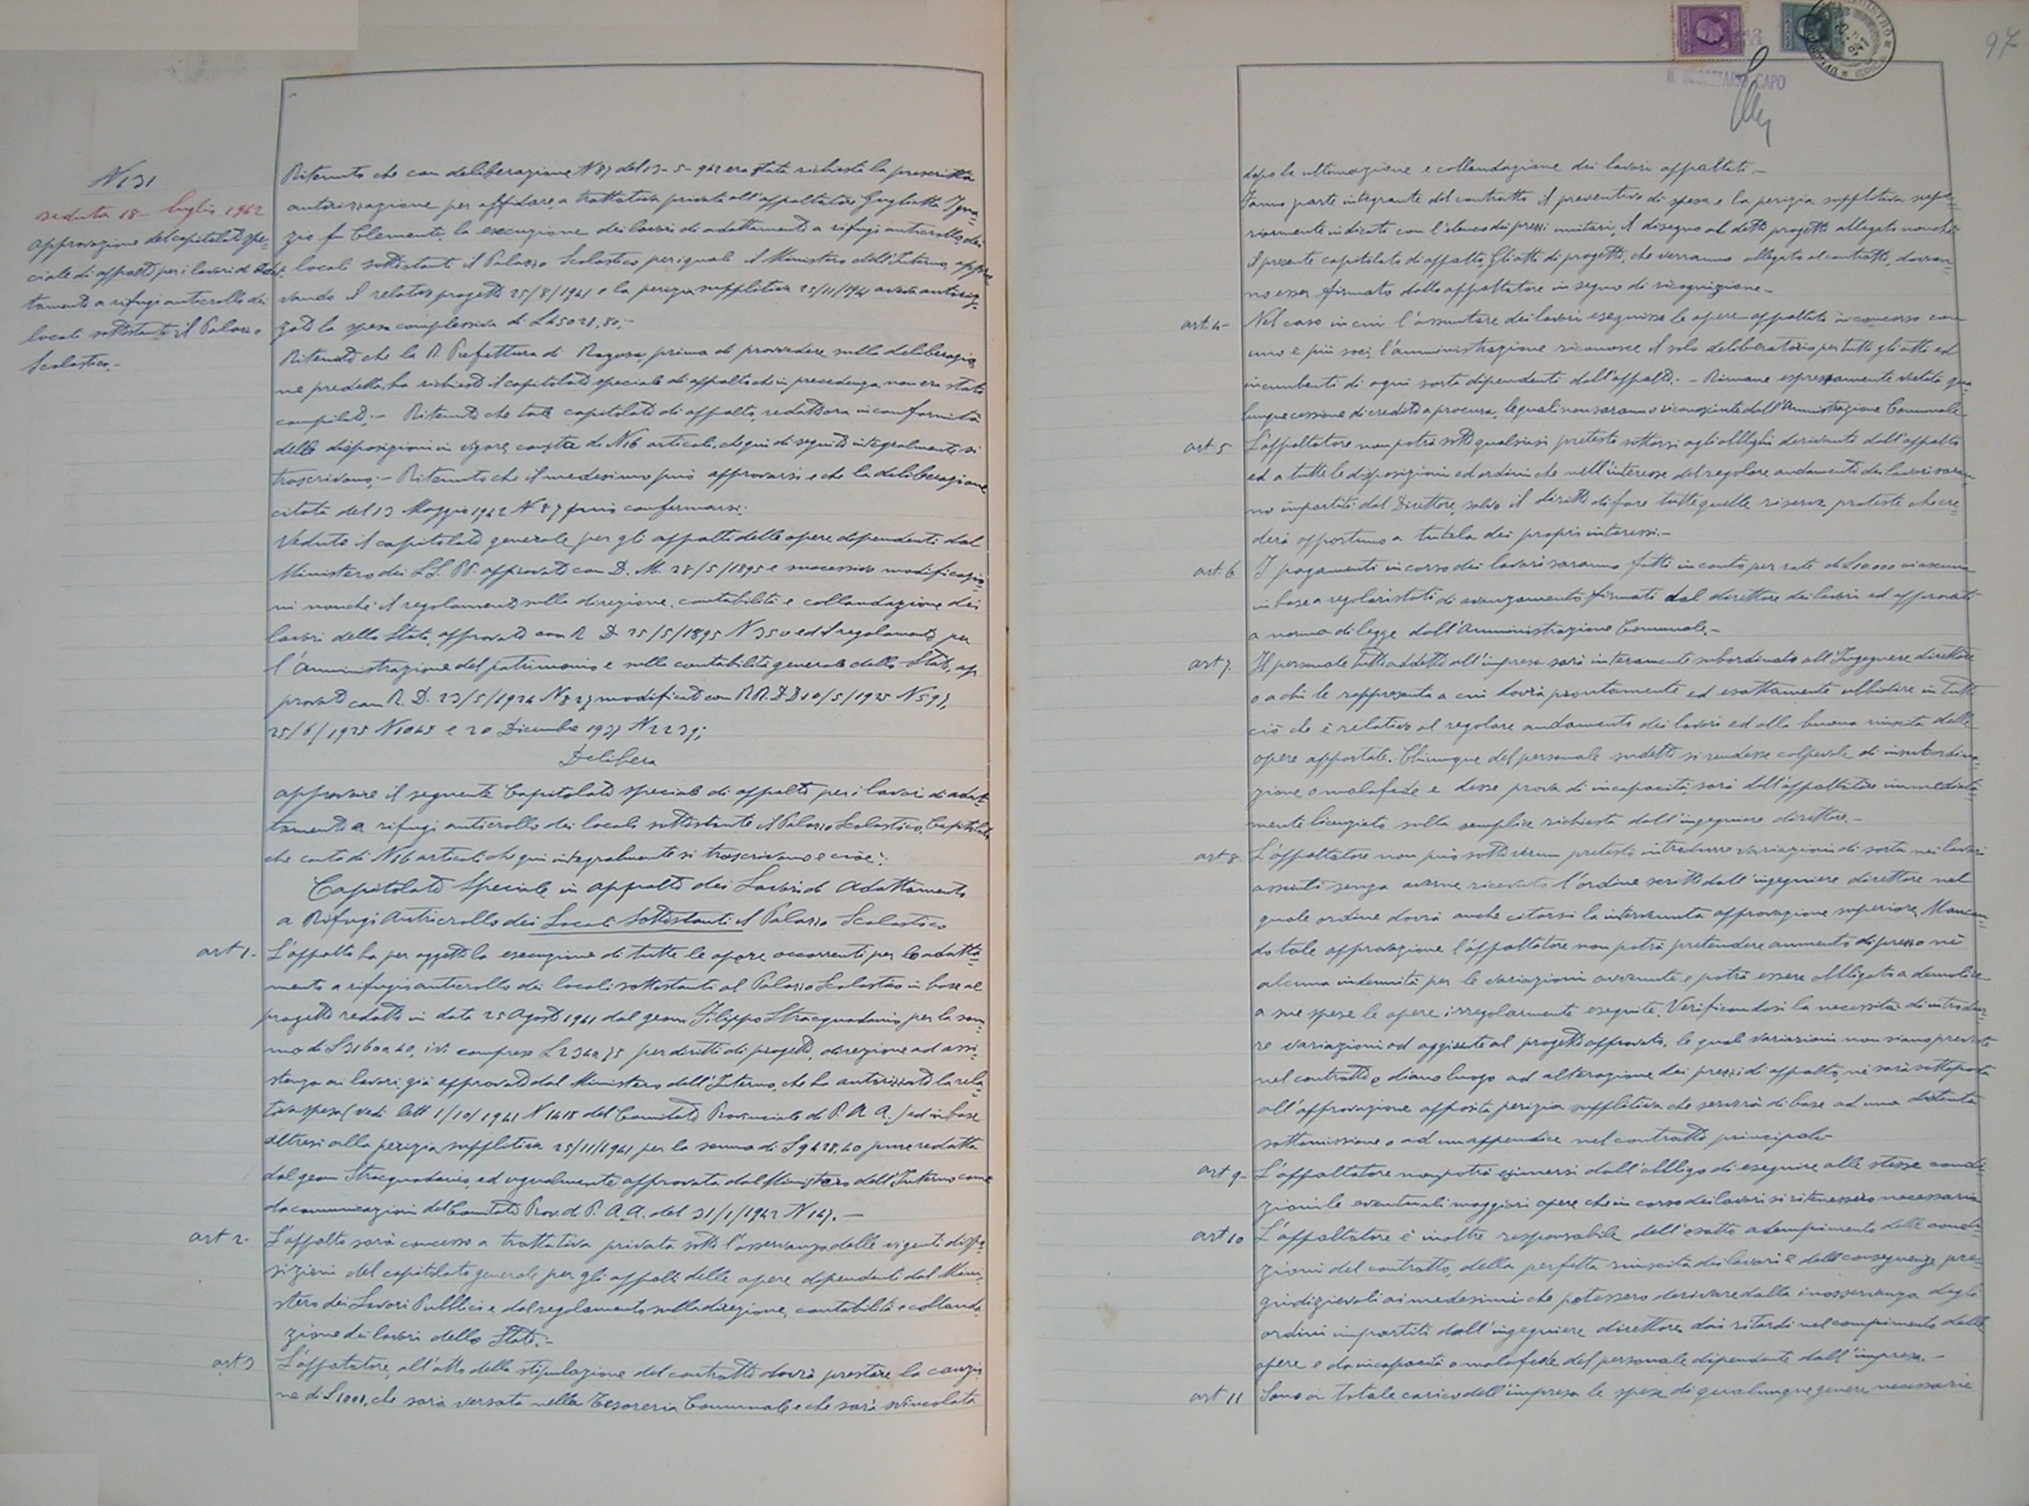 N 131
seduta 18 - luglio 1942
approvazione del capitolato spe-
ciale di appalto per i lavori di adat-
tamento a rifugi anticrollo dei
locali sottostanti il Palazzo
Scolastico.-
Ritenuto che con deliberazione N 87 del 13-5-942 era stata richiesta la prescritta
autorizzazione per affidare, a trattativa privata all'appaltatore Guglietta Igna-
zio fu Clemente, la esecuzione dei lavori di adattamento a rifugi anticrollo dei
locali sottostanti il Palazzo Scolastico per i quali il Ministero dell'Interno, appro-
vando il relativo progetto 25/8/1941 e la perizia suppletiva 25/11/1941 aveva autoriz-
zato la spesa complessiva di L. 45028,80;-
Ritenuto che la R. Prefettura di Ragusa, prima di provvedere sulla deliberazio-
ne predetta, ha richiesto il capitolato speciale di appalto che in precedenza non era stato
compilato;- Ritenuto che tale capitolato di appalto, redatto ora in conformità
delle disposizioni in vigore, consta di N 16 articoli, che qui di seguito integralmente si
trascrivono;- Ritenuto che il medesimo può approvarsi e che la deliberazione
citata del 13 Maggio 1942 N 87 può confermarsi;
Veduto il capitolato generale per gli appalti delle opere dipendenti dal
Ministero dei LL. PP. approvato con D. M. 28/5/1895 e successive modificazio-
ni nonchè il regolamento sulla direzione, contabilità e collaudazione dei
lavori dello Stato, approvato con R D 25/5/1895 N 350 ed il regolamento per
l'Amministrazione del patrimonio e sulla contabilità generale dello Stato, ap-
provato con R. D. 23/5/1924 N 827 modificato con RR. DD 10/5/1925 N 597,
25/6/1925 N 1045 e 20 Dicembre 1937 N 2239;
Delibera
approvare il seguente Capitolato speciale di appalto per i lavori di adat-
tamento a rifugi anticrollo dei locali sottostante il Palazzo Scolastico, Capitolato
che consta di N 16 articoli che qui integralmente si trascrivono e cioè:
Capitolato Speciale in appalto dei Lavori di Adattamento
a Rifugi Anticrollo dei Locali Sottostanti il Palazzo Scolastico
art 1- L'appalto ha per oggetto la esecuzione di tutte le opere occorrenti per lo adatta-
mento a rifugio anticrollo dei locali sottostanti al Palazzo Scolastico in base al
progetto redatto in data 25 Agosto 1941 dal geom Filippo Stracquadanio, per la som-
ma di L 31600,40, ivi compreso L 2340,75 per diritti di progetto, direzione ad assi-
stenza ai lavori, già approvato dal Ministero dell'Interno, che ha autorizzato la rela-
tiva spesa (vedi lett 1/10/1941 N 1418 del Comitato Provinciale di P. A A.) ed in base
altresì alla perizia suppletiva 25/11/1941 per la somma di L 9428,40 pure redatta
dal geom Stracquadanio, ed ugualmente approvata dal Ministero dell'Interno come
da comunicazioni del Comitato Prov. di P. A. A. del 31/1/1942 N 147.-
art 2- L'appalto sarà concesso a trattativa privata sotto l'osservanza delle vigenti dispo-
sizioni del capitolato generale per gli appalti delle opere dipendenti dal Mini-
stero dei Lavori Pubblici e dal regolamento sulla direzione, contabilità e collauda-
zione dei lavori dello Stato.-
art 3 L'appaltatore, all'atto della stipulazione del contratto dovrà prestare la cauzio-
ne di L 1000, che sarà versata nella Tesoreria Comunale e che sarà svincolata
97
IL SEGRETARIO CAPO
dopo la ultimazione e collaudazione dei lavori appaltati.-
Fanno parte integrante del contratto il preventivo di spesa e la perizia suppletiva supe-
riormente indicate con l'elenco dei prezzi unitari, il disegno al detto progetto allegato nonchè
il presente capitolato di appalto. Gli atti di progetto, che verranno allegati al contratto, dovran-
no esser firmato dallo appaltatore in segno di ricognizione.-
art. 4- Nel caso in cui l'assuntore dei lavori eseguisse le opere appaltate in concorso con
uno e più soci, l'amministrazione riconosce il solo deliberatario per tutti gli atti ed
incumbenti di ogni sorta dipendenti dall'appalto.- Rimane espressamente vietata qua-
lunque cessione di credito a procura, le quali non saranno riconosciute dall'Amministrazione Comunale
art 5 L'appaltatore non potrà sotto qualsiasi pretesto sottrarsi agli obblighi derivanti dall'appalto
ed a tutte le disposizioni ed ordini che nell'interesse del regolare andamento dei lavori saran-
no impartiti dal Direttore, salvo il diritto di fare tutte quelle riserve, proteste che cre-
derà opportuno a tutela dei propri interessi.-
art. 6 I pagamenti in corso dei lavori saranno fatti in conto per rate di L 10.000 ciascuna
in base a regolari stati di avanzamento firmati dal direttore dei lavori ed approvati
a norma di legge dall'Amministrazione Comunale.-
art 7. Il personale tutto addetto all'impresa sarà interamente subordinato all'Ingegnere direttore
o a chi lo rappresenta a cui dovrà prontamente ed esattamente ubbidire in tutto
ciò che è relativo al regolare andamento dei lavori ed alla buona riuscita delle
opere appaltate. Chiunque del personale sudetto si rendesse colpevole di insubordina-
zione o malafede e desse prova di incapacità, sarà dall'appaltatore immediata-
mente licenziato sulla semplice richiesta dall'ingegniere direttore.-
art 8. L'appaltatore non può sotto verun pretesto introdurre variazioni di sorta nei lavori
assunti senza averne ricevuto l'ordine scritto dall'ingegniere direttore nel
quale ordine dovrà anche citarsi la intervenuta approvazione superiore. Mancan-
do tale approvazione l'appaltatore non potrà pretendere aumento di prezzo nè
alcuna indennità per le variazioni avvenute e potrà essere obbligato a demolire
a sue spese le opere irregolarmente eseguite. Verificandosi la necessità di introdur-
re variazioni od aggiunte al progetto approvato, le quali variazioni non siano previste
nel contratto e diano luogo ad alterazione dei prezzi di appalto, ne sarà sottoposta
all'approvazione apposita perizia suppletiva che servirà di base ad una distinta
sottomissione o ad un appendice nel contratto principale
art 9- L'appaltatore non potrà esimersi dall'obbligo di eseguire alle stesse condi-
zioni le eventuali maggiori opere che in corso dei lavori si ritenessero necessarie
art 10 L'appaltatore è inoltre responsabile dell'esatto adempimento delle condi-
zioni del contratto, della perfetta riuscita dei lavori e delle conseguenze pre-
giudizievoli ai medesimi che potessero derivare dalla inosservanza degli
ordini impartiti dall'ingegniere direttore, dai ritardi nel compimento delle
opere e da incapacità o malafede del personale dipendente dall'impresa.-
art 11 Sono a totale carico dell'impresa le spese di qualunque genere necessarie